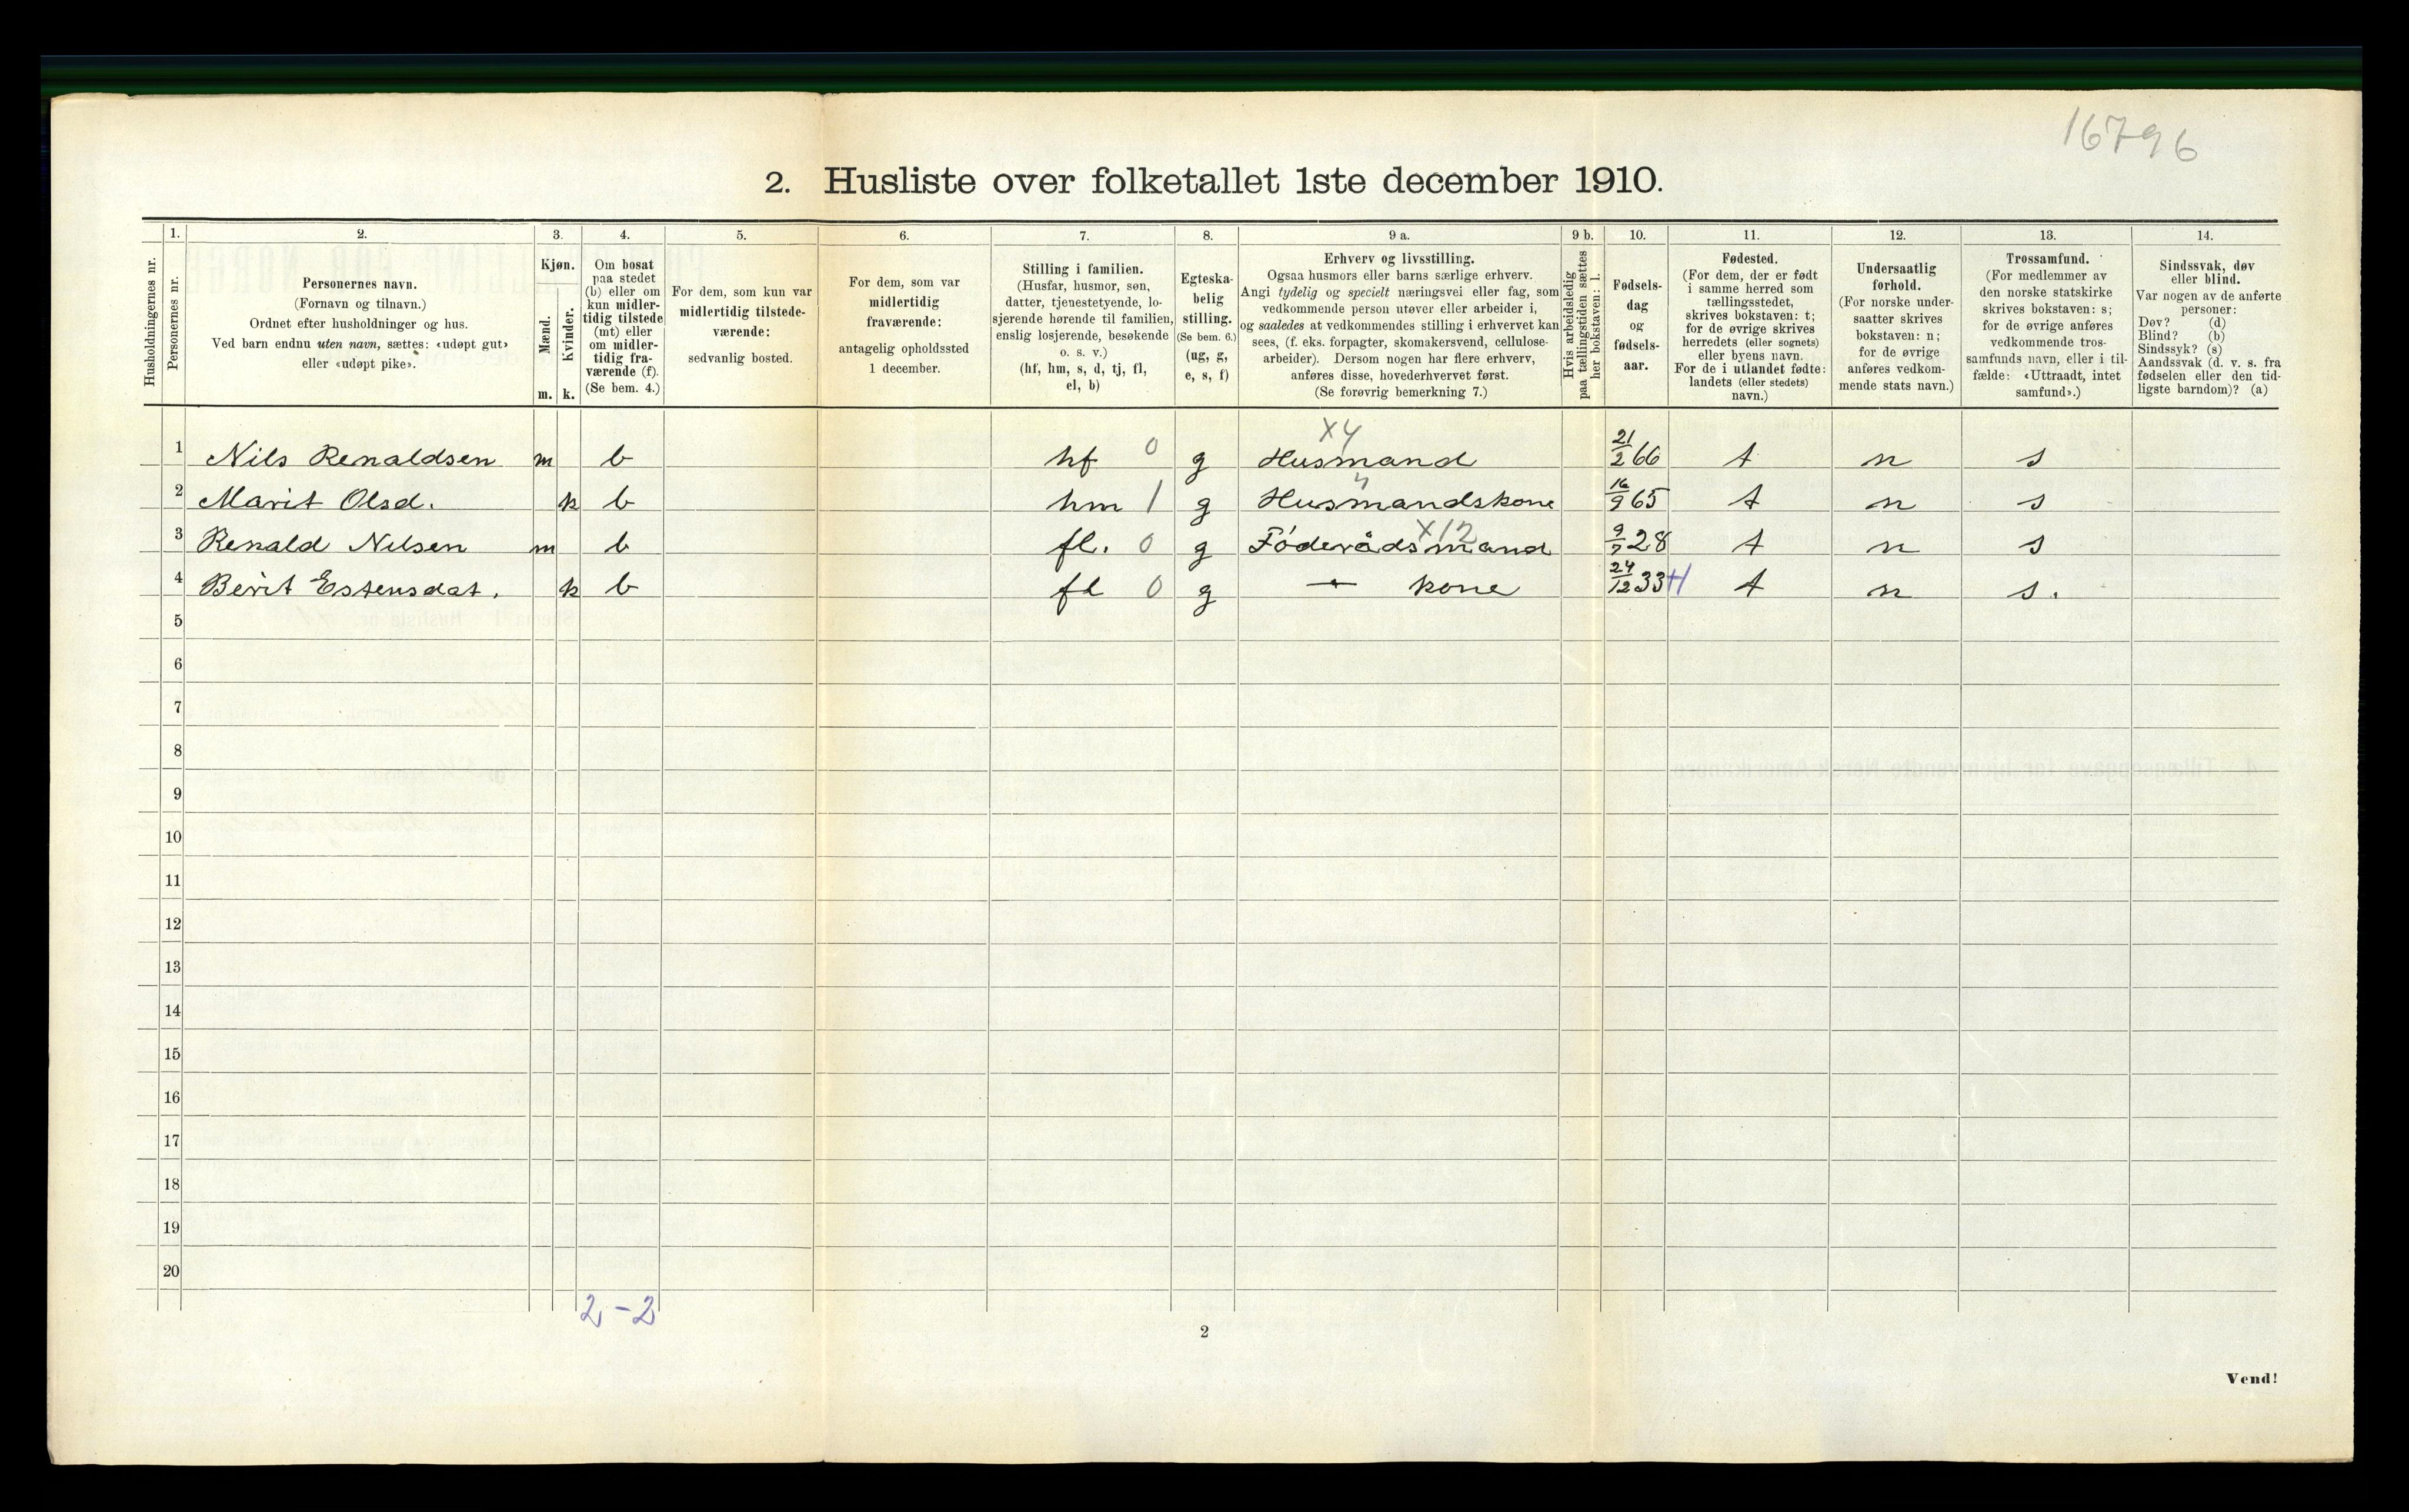 16796
2. Husliste over folketallet 1ste december 1910.
Husholdningernes nr.
1.
Personernes nr.
2.
Personernes navn.
(Fornavn og tilnavn.)
Ordnet efter husholdninger og hus.
Ved barn endnu uten navn, sættes: «udøpt gut»
eller «udøpt pike».
3.
Kjøn.
Mænd.
Kvinder.
m. k.
4.
Om bosat
paa stedet
(b) eller om
kun midler-
tidig tilstede
(mt) eller
om midler-
tidig fra-
værende (f).
(Se bem. 4.)
5.
For dem, som kun var
midlertidig tilstede-
værende:
sedvanlig bosted.
6.
For dem, som var
midlertidig
fraværende:
antagelig opholdssted
1 december.
7.
Stilling i familien.
(Husfar, husmor, søn,
datter, tjenestetyende, lo-
sjerende hørende til familien,
enslig losjerende, besøkende
o. s. v.)
(hf, hm, s, d, tj, fl,
el, b)
8.
Egteska-
belig
stilling.
(Se bem. 6.)
(ug, g,
e, s, f)
9 a.
Erhverv og livsstilling.
Ogsaa husmors eller barns særlige erhverv.
Angi tydelig og specielt næringsvei eller fag, som
vedkommende person utøver eller arbeider i,
og saaledes at vedkommendes stilling i erhvervet kan
sees, (f. eks. forpagter, skomakersvend, cellulose-
arbeider). Dersom nogen har flere erhverv,
anføres disse, hovederhvervet først.
(Se forøvrig bemerkning 7.)
9 b.
Hvis arbeidsledig
paa tællingstiden sættes
her bokstaven: l.
10.
Fødsels-
dag
og
fødsels-
aar.
11.
Fødested.
(For dem, der er født
i samme herred som
tællingsstedet,
skrives bokstaven: t;
for de øvrige skrives
herredets (eller sognets)
eller byens navn.
For de i utlandet fødte:
landets (eller stedets)
navn.)
12.
Undersaatlig
forhold.
(For norske under-
saatter skrives
bokstaven: n;
for de øvrige
anføres vedkom-
mende stats navn.)
13.
Trossamfund.
(For medlemmer av
den norske statskirke
skrives bokstaven: s;
for de øvrige anføres
vedkommende tros-
samfunds navn, eller i til-
fælde: «Uttraadt, intet
samfund».)
14.
Sindssvak, døv
eller blind.
Var nogen av de anførte
personer:
Døv? (d)
Blind? (b)
Sindssyk? (s)
Aandssvak (d. v. s. fra
fødselen eller den tid-
ligste barndom)? (a)
X4
1 Nils Renaldsen m b hf 0 g Husmand 21/2 66 t n s
4
2 Marit Olsd. k b hm 1 g Husmandskone 16/9 65 t n s
X12
3 Renald Nilsen m b fl. 0 g Föderådsmand 9/7 28 t n s
4 Berit Estensdat. k b fl 0 g -"- kone 24/12 33 H t n s.
5
6
7
8
9
10
11
12
13
14
15
16
17
18
19
20
2-2
2
Vend!